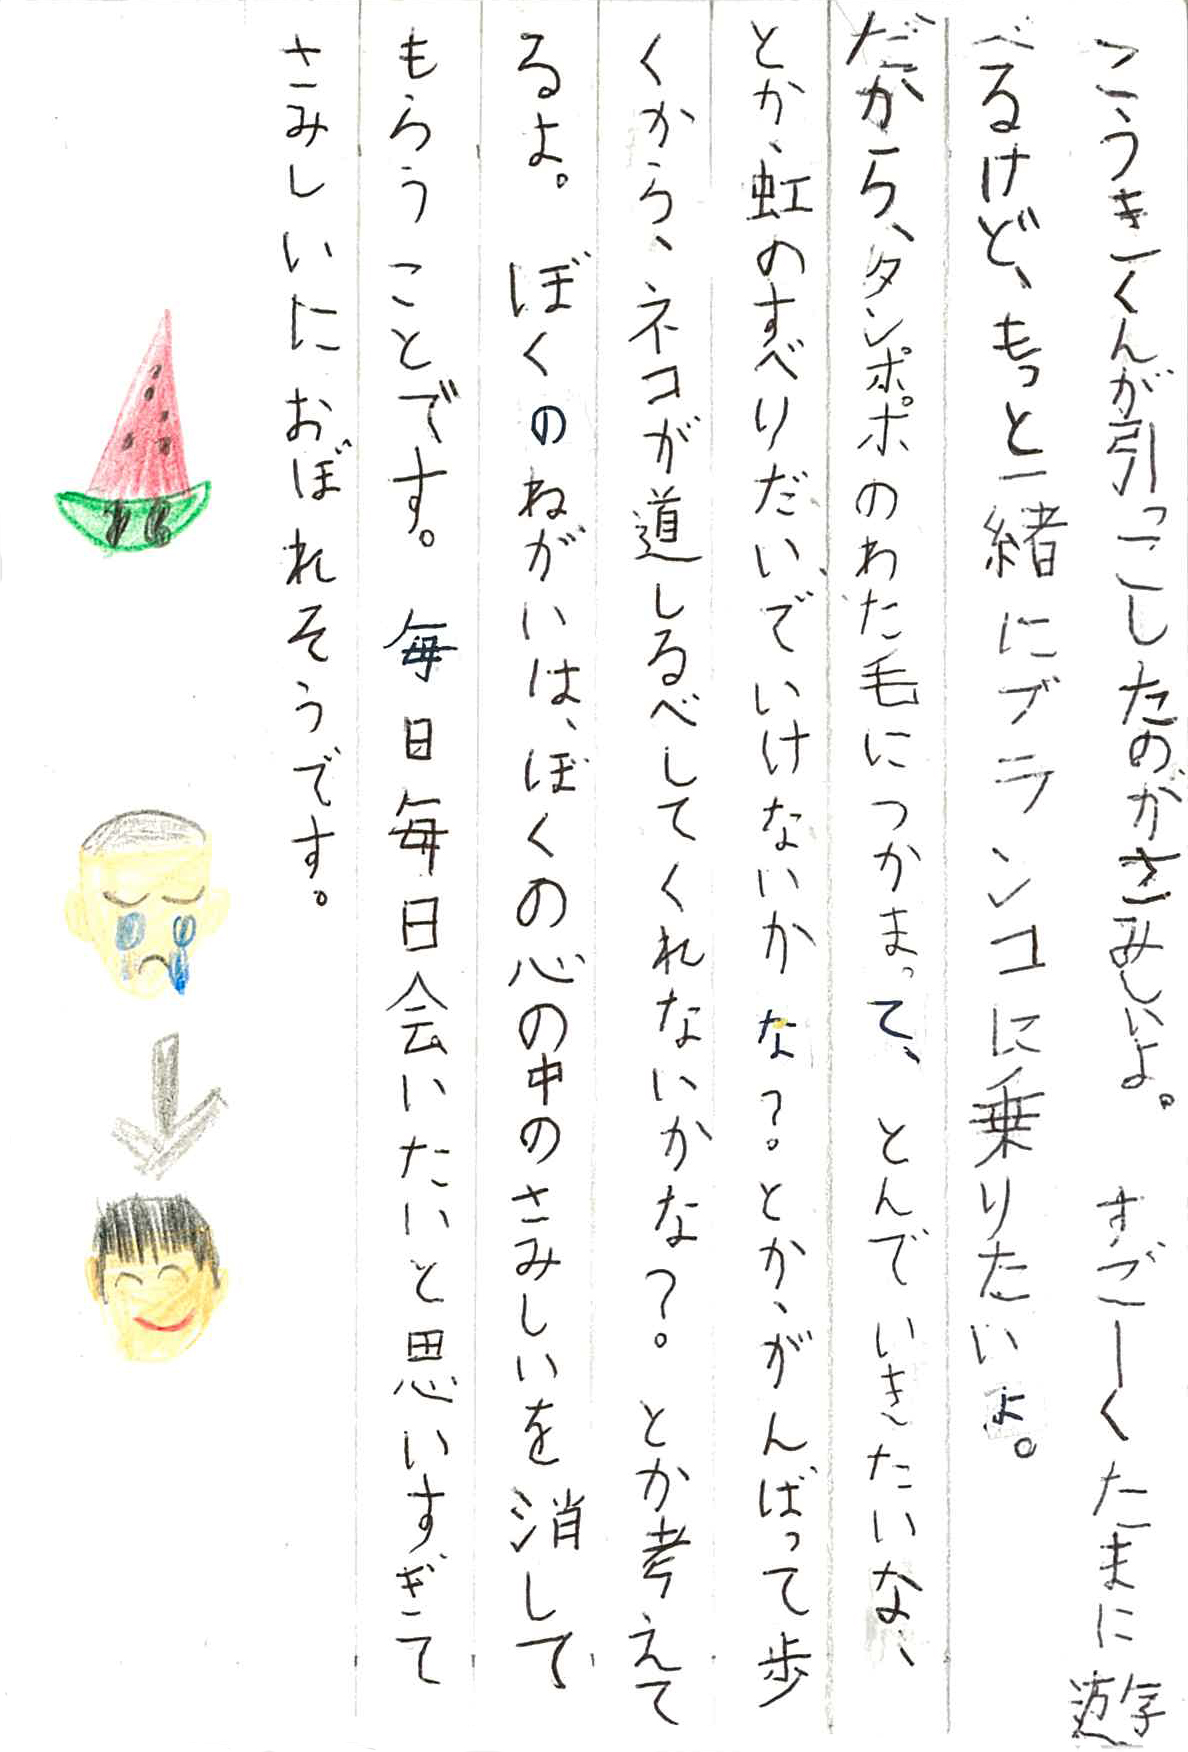 こうきくんが引っこしたのがさみしいよ。　すごーくたまに遊
べるけど、もっと一緒にブランコに乗りたいよ。
だから、タンポポのわた毛につかまって、とんでいきたいな、
とか、虹のすべりだいでいけないかな？。とか、がんばって歩
くから、ネコが道しるべしてくれないかな？。とか考えて
るよ。　ぼくのねがいは、ぼくの心の中のさみしいを消して
もらうことです。毎日毎日会いたいと思いすぎて
さみしいにおぼれそうです。